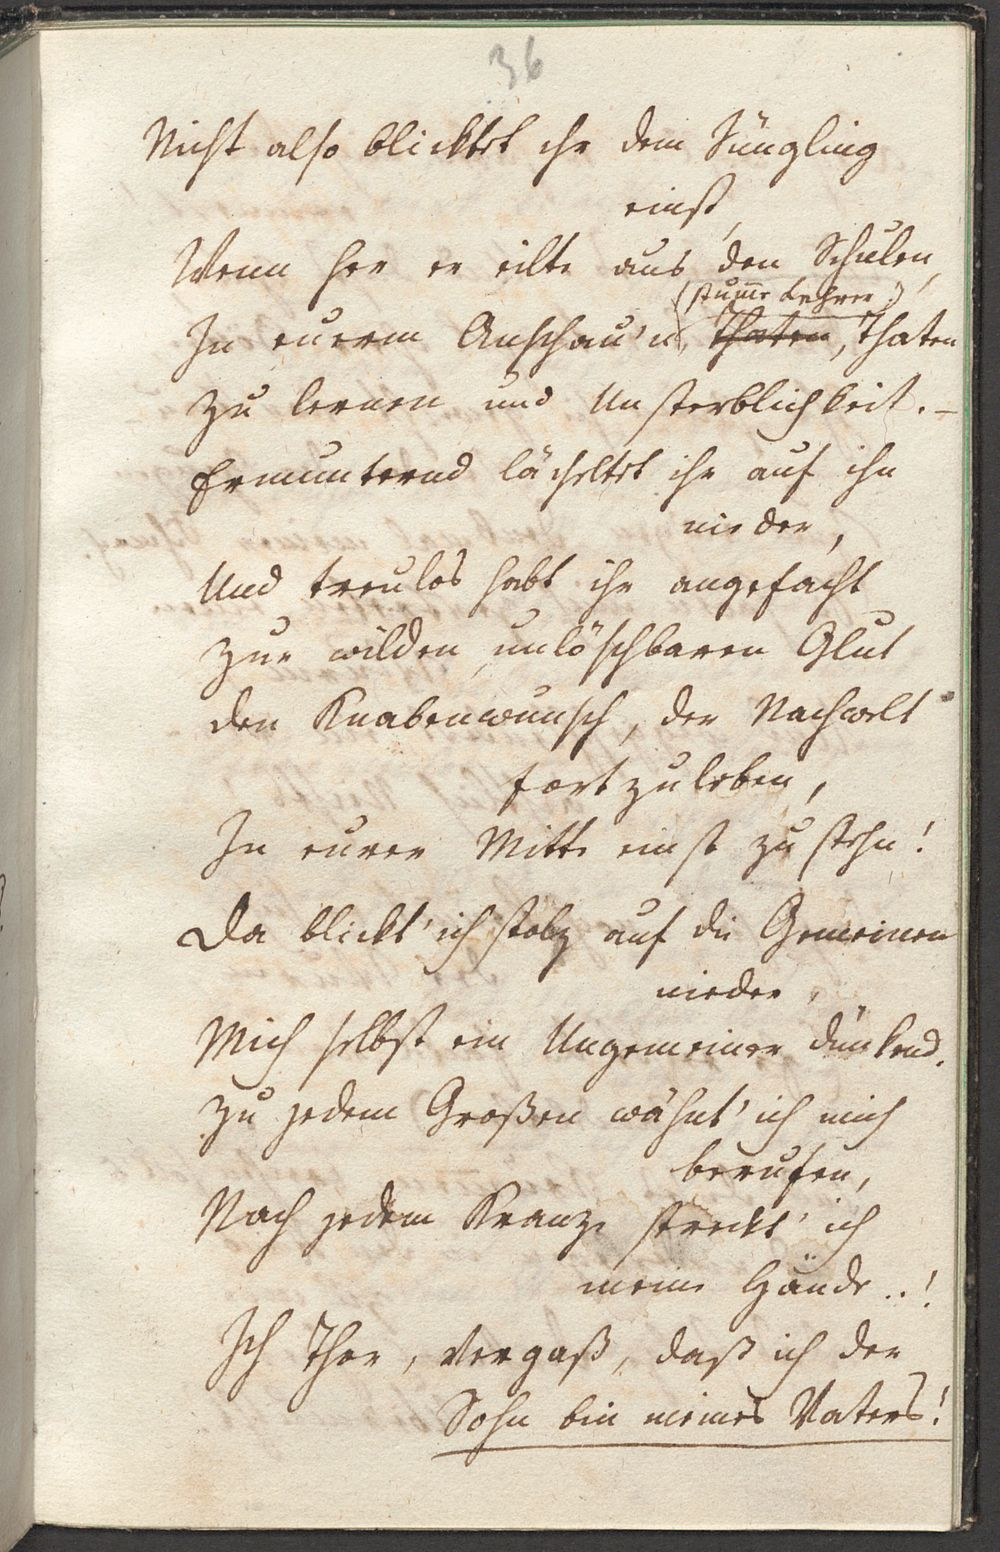 36
Nicht also blicktet ihr dem Jüngling
einst,
Wenn her er eilte aus den Schulen,
(stum̅e Lehrer,)
In eurem Anschau'n, ~~Thaten~~, Thaten
zu lernen und Unsterblichkeit. –
Ermunternd lächeltet ihr auf ihn
nieder,
Und treulos habt ihr angefacht
zur wilden unlöschbaren Glut
den Knabenwunsch, der Nachwelt
fortzuleben,
In eurer Mitte einst zu stehn!
Da blickt' ich stolz auf die Gemeinen
nieder,
Mich selbst ein Ungemeiner dünkend.
Zu jedem Großen wähnt' ich mich
berufen,
Nach jedem Kranze streckt' ich
meine Hände..!
Ich Thor, vergaß, daß ich der
Sohn bin meines Vaters!